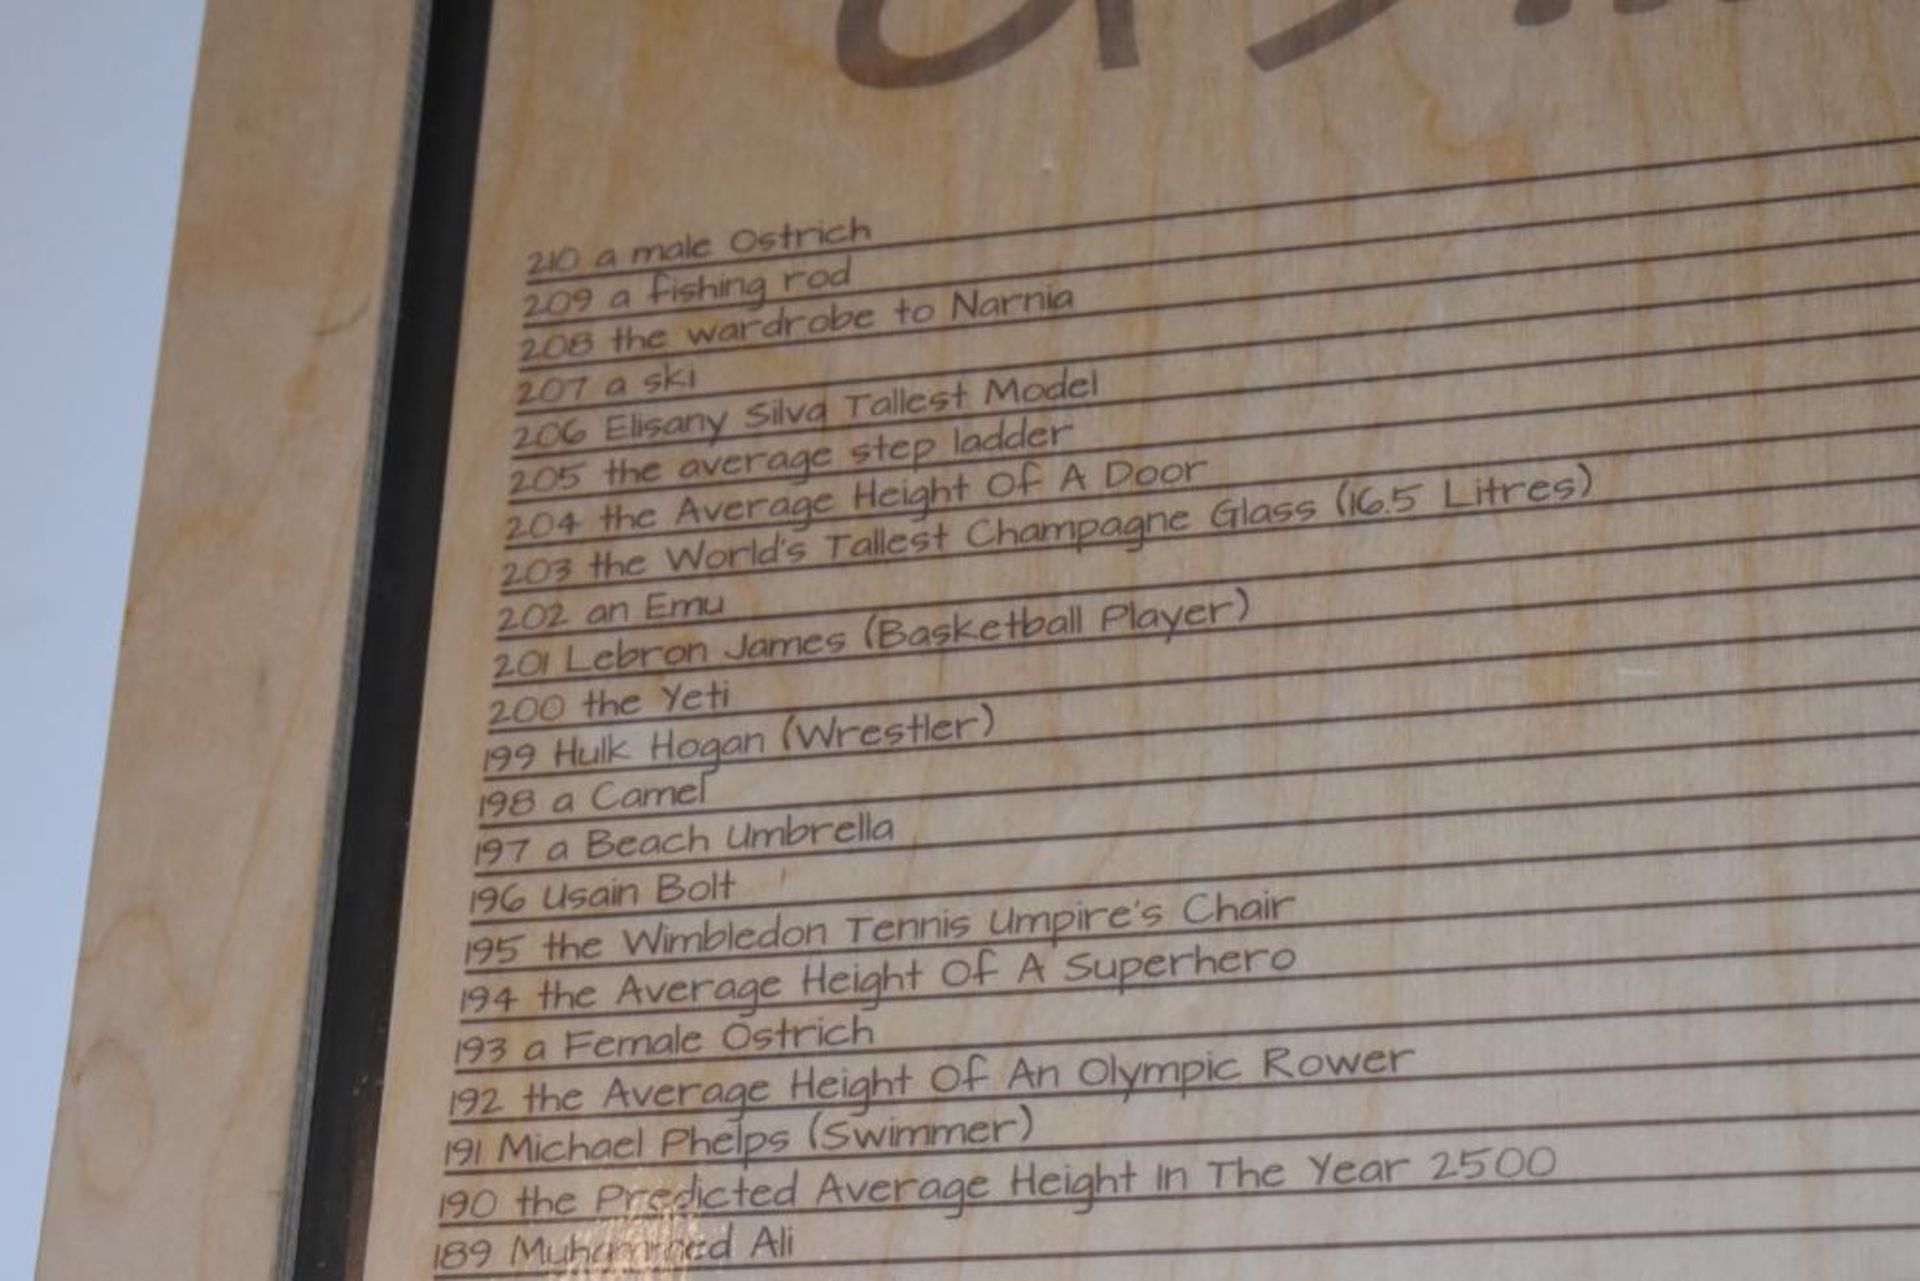 210 a male Ostrich
209 a fishing rod
208 the wardrobe to Narnia
207 a ski
206 Elisany Silva Tallest Model
205 the average step ladder
204 the Average Height Of A Door
203 the World's Tallest Champagne Glass (16.5 Litres)
202 an Emu
201 Lebron James (Basketball Player)
200 the Yeti
199 Hulk Hogan (Wrestler)
198 a Camel
197 a Beach Umbrella
196 Usain Bolt
195 the Wimbledon Tennis Umpire's Chair
194 the Average Height Of A Superhero
193 a Female Ostrich
192 the Average Height Of An Olympic Rower
191 Michael Phelps (Swimmer)
190 the Predicted Average Height In The Year 2500
189 Muhammed Ali